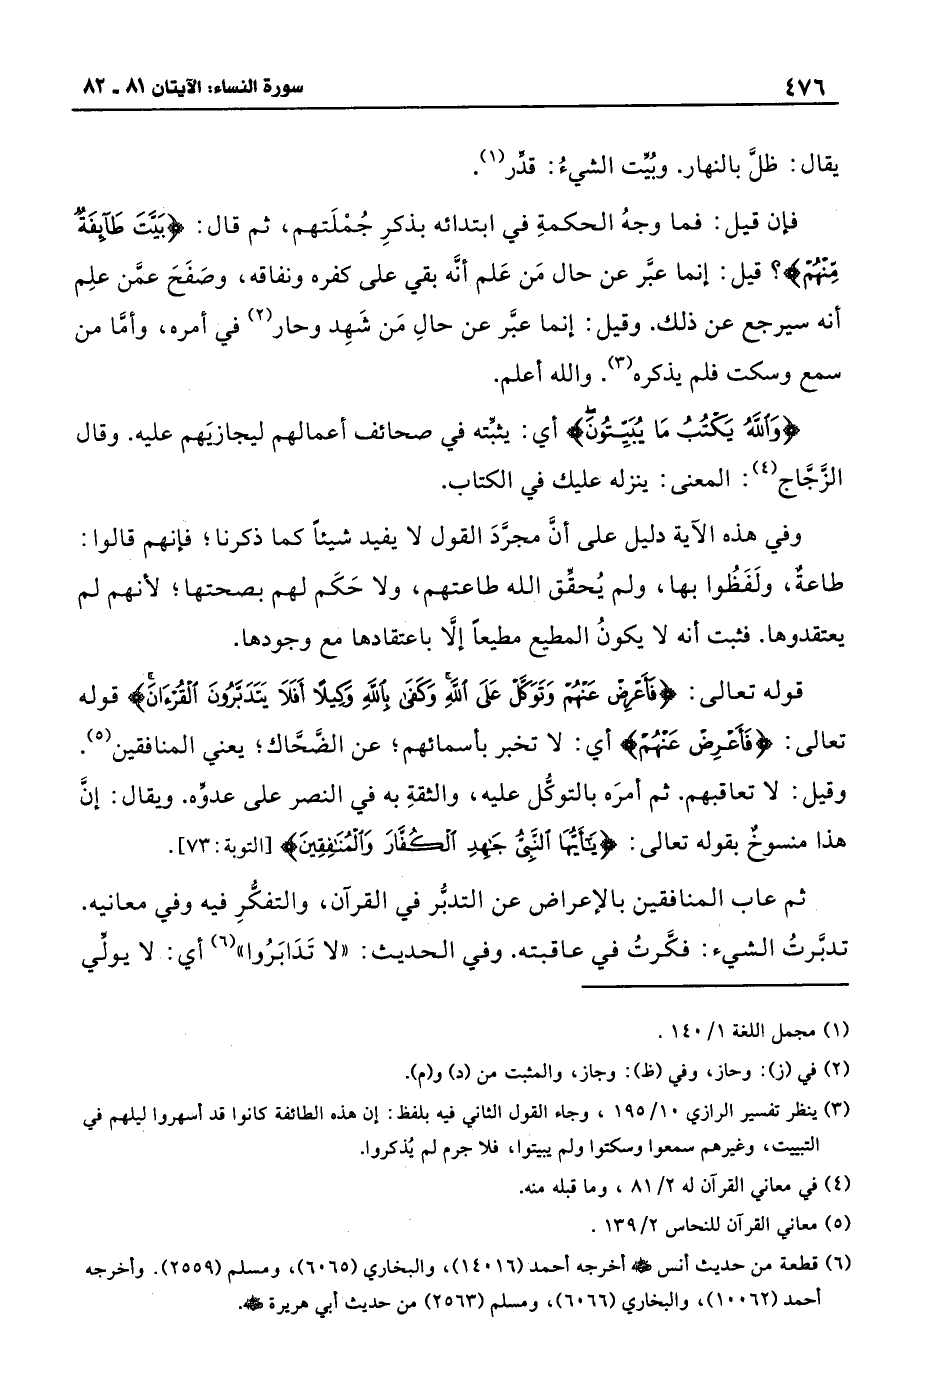 ٤٧٦ سورة النساء: الآيتان ٨١ - ٨٢
يقال: ظلَّ بالنهار. وبُيِّت الشيءُ: قدِّر(١).
فإن قيل: فما وجهُ الحكمةِ في ابتدائه بذكرِ جُمْلَتهم، ثم قال: ﴿بَيَّتَ طَآئِفَةٌ
مِّنْهُمْ﴾؟ قيل: إنما عبَّر عن حال مَن عَلم أنَّه بقي على كفره ونفاقه، وصَفَحَ عمَّن علِم
أنه سيرجع عن ذلك. وقيل: إنما عبَّر عن حالِ مَن شَهِد وحار(٢) في أمره، وأمَّا من
سمع وسكت فلم يذكره(٣). والله أعلم.
﴿وَٱللَّهُ يَكْتُبُ مَا يُبَيِّتُونَۖ﴾ أي: يثبِّته في صحائف أعمالهم ليجازيَهم عليه. وقال
الزَّجَّاج(٤): المعنى: ينزله عليك في الكتاب.
وفي هذه الآية دليل على أنَّ مجرَّدَ القول لا يفيد شيئاً كما ذكرنا؛ فإنهم قالوا:
طاعةٌ، ولَفَظُوا بها، ولم يُحقِّق الله طاعتهم، ولا حَكَم لهم بصحتها؛ لأنهم لم
يعتقدوها. فثبت أنه لا يكونُ المطيع مطيعاً إلَّا باعتقادها مع وجودها.
قوله تعالى: ﴿فَأَعْرِضْ عَنْهُمْ وَتَوَكَّلْ عَلَى ٱللَّهِۚ وَكَفَىٰ بِٱللَّهِ وَكِيلًا أَفَلَا يَتَدَبَّرُونَ ٱلْقُرْءَانَۚ﴾ قوله
تعالى: ﴿فَأَعْرِضْ عَنْهُمْ﴾ أي: لا تخبر بأسمائهم؛ عن الضَّحَّاك؛ يعني المنافقين(٥).
وقيل: لا تعاقبهم. ثم أمرَه بالتوكُّل عليه، والثقةِ به في النصر على عدوِّه. ويقال: إنَّ
هذا منسوخٌ بقوله تعالى: ﴿يَٰٓأَيُّهَا ٱلنَّبِىُّ جَٰهِدِ ٱلْكُفَّارَ وَٱلْمُنَٰفِقِينَ﴾ [التوبة: ٧٣].
ثم عاب المنافقين بالإعراض عن التدبُّر في القرآن، والتفكُّرِ فيه وفي معانيه.
تدبَّرتُ الشيء: فكَّرتُ في عاقبته. وفي الحديث: «لا تَدَابَرُوا»(٦) أي: لا يولِّي
(١) مجمل اللغة ١/ ١٤٠ .
(٢) في (ز): وحاز، وفي (ظ): وجاز، والمثبت من (د) و(م).
(٣) ينظر تفسير الرازي ١٠/ ١٩٥ ، وجاء القول الثاني فيه بلفظ: إن هذه الطائفة كانوا قد أسهروا ليلهم في
التبييت، وغيرهم سمعوا وسكتوا ولم يبيتوا، فلا جرم لم يُذكروا.
(٤) في معاني القرآن له ٢/ ٨١ ، وما قبله منه.
(٥) معاني القرآن للنحاس ٢/ ١٣٩ .
(٦) قطعة من حديث أنس ﷺ أخرجه أحمد (١٤٠١٦)، والبخاري (٦٠٦٥)، ومسلم (٢٥٥٩). وأخرجه
أحمد (١٠٠٦٢)، والبخاري (٦٠٦٦)، ومسلم (٢٥٦٣) من حديث أبي هريرة ﷺ.